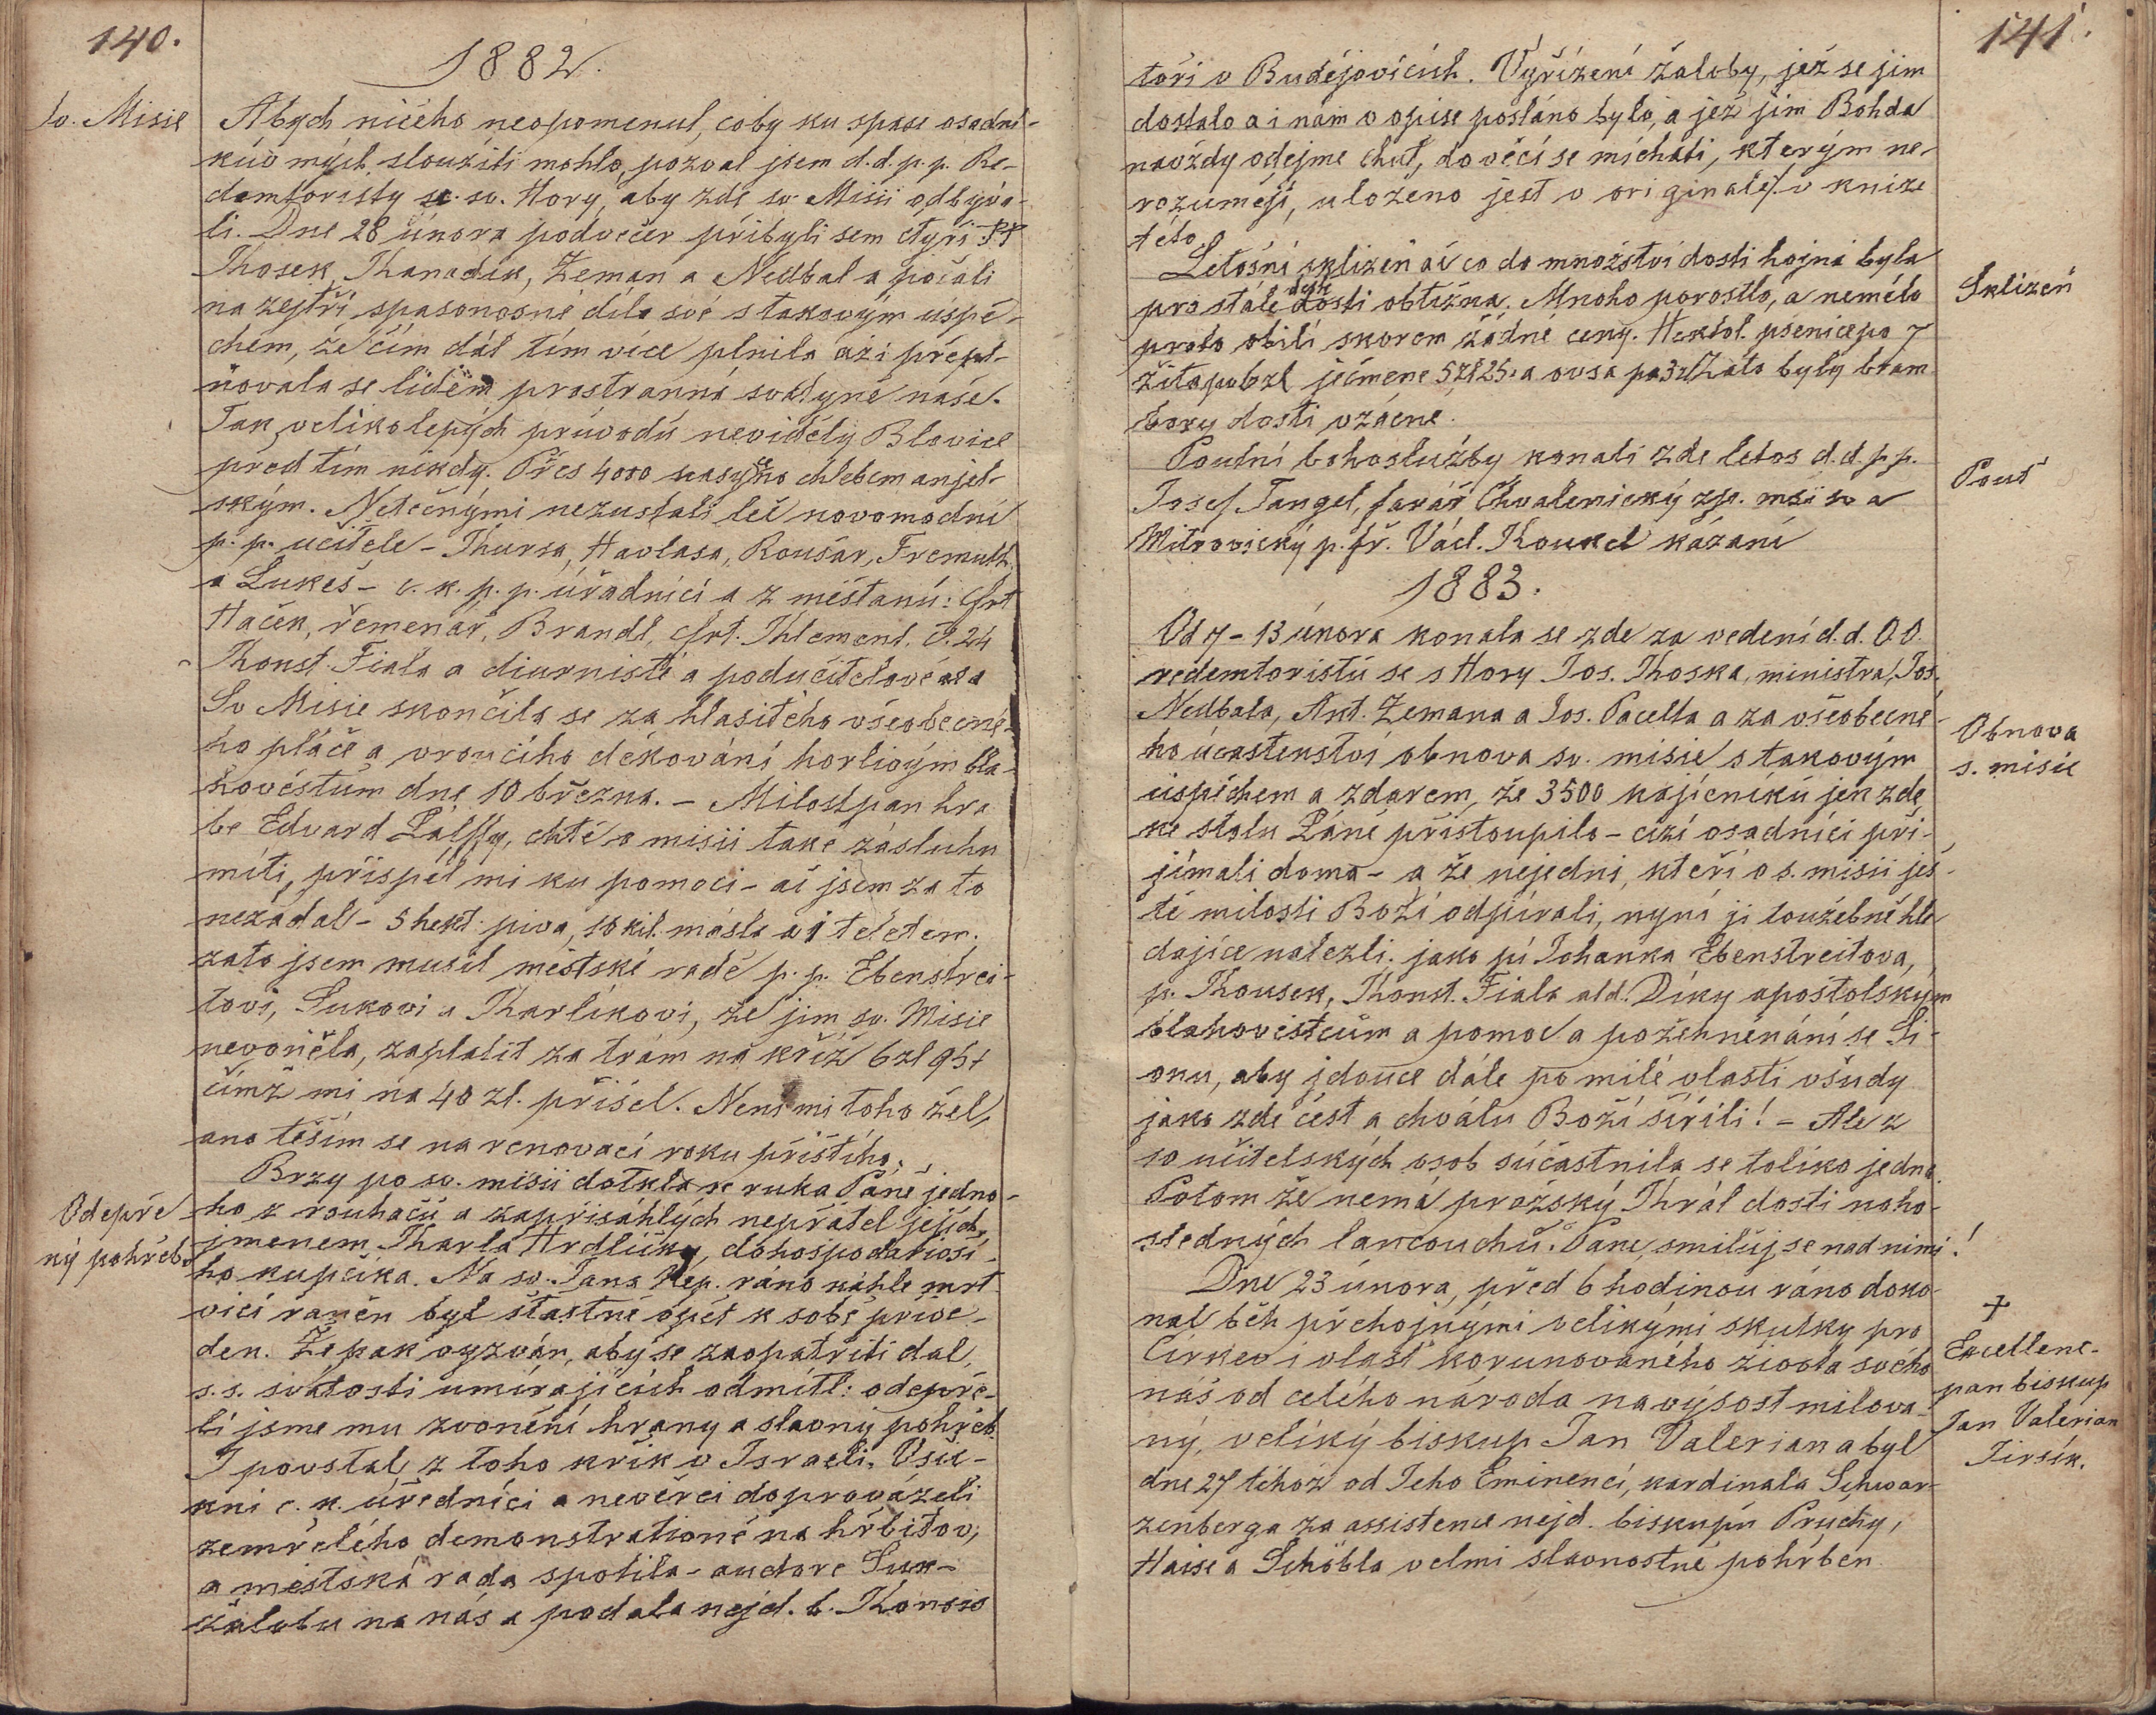 140.
1882.
Sv. Misie
Abych ničeho neopomenul, coby ku spase osadní-
kův mých sloužiti mohlo, pozval jsem d.d.p.p. Re-
demtoristy se sv. Hory, aby zde sv. Misii odbýva-
li. Dne 28 února podvečer přibyli sem čtyři PP
Khosek, Khanadík, Zeman a Nedbal a počali
na zejtří spasonosné dílo své s takovým úspě-
chem, že čím dál tím více plnila až i přepl-
ňovala se lidem prostranná svatyně naše.
Tak velikolepých průvodů neviděly Blovice
před tím nikdy. Přes 4000 nasyceno chlebem anjel-
ským. Netečnými nezustali leč novomodní
p. p. učitelé - Thursa, Havlasa, Roušar, Fremuth
a Lukeš - c. k. p. p. úřadníci a z měšťanů: Frt
Haček, řemenář, Brandl, Frt. Khlement. č. 24
Khonst. Fiala a diurnisté a podučitelové
Sv Misie skončila se za hlasitého všeobecné-
ho pláče a vroucího děkování horlivým bla-
hověstům dne 10 března. - Milostpan hra
be Edvard Pálffy, chtě o misii také zásluhu
míti, přispěl mi ku pomoci - ač jsem za to
nežádal - 5 hekt. piva, 10 kil. másla a 1 teletem.
zato jsem musil městské radě p. p. Ebenstrei-
tovi, Sukovi a Kharlíkovi, že jim sv. Misie
nevoněla, zaplatit za trám na kříž 6 zl 95+
čímž mi na 40 zl. přišel. Není mi toho žel,
ano těším se na renovaci roku příštího.
Brzy po sv. misii dotkla se ruka Páně jedno-
Odepře
ný pohřeb
ho z rouhačů a zapřisáhlých nepřátel jejích
jmenem Kharla Hrdličky, dohospodařivší-
ho kupčíka. Na sv. Jana Nep. ráno náhle mrt
vicí raněn byl šťastně opět k sobě přive-
den. Že pak vyzván, aby se zaopatřiti dal,
s. s. svátosti umírajících odmítl: odepře-
li jsme mu zvonění hrany a slavný pohřeb.
I povstal z toho křik v Israeli. Vsu-
kni c. k. úředníci a nevěrci doprováželi
zemřelého demonstrationé na hřbitov,
a městská rada spotila - auctore Suk -
žalobu na nás a podala nejd. b. Konsis
141.
toři v Budějovicích. Vyřízení žaloby, jež se jim
dostalo a i nám v opise posláno bylo, a jež jim Bohda
navždy odejme chuť, do věcí se míchati, kterým ne-
rozumějí, uloženo jest v originale v knize
této.
Sklizeň
Letošní sklizeň ač co do množství dosti hojná byla
pro stálé deště dosti obtížná. Mnoho porostlo, a nemělo
proto obilí skorem žádné ceny. Hektol. pšenice po 7
žita po 6 zl ječmene 5 zl 25. a ovsa po 3 zl Zato byly bram
bory dosti vzácné.
Pouť
Poutní bohoslužby konali zde letos d. d. p. p.
Josef Tangel, farář Chvalenický zp. mši sv a
Mitrovický p. fř. Václ. Koukel kázaní
1883.
Od 7 - 13 února konala se zde za vedení d. d. O.O.
redemtoristů se s Hory Jos. Khoska, ministra, Jos.
Nedbala, Ant. Zemana a Jos. Pacelta a za všeobecné-
Obnova
s. misie
ho účastenství obnova sv. misie s takovým
úspěchem a zdarem, že 3500 kajícníků jen zde
ke stolu Páně přistoupilo - cizí osadníci při-
jímali doma - a že nejedni, kteří o s. misii ješ-
tě milosti Boží odpírali, nyní ji toužebně hle
dajíce nalezli. jako pí Johanka Ebenstreitova,
p. Khousek, Khonst. Fiala atd. Díky apoštolským
blahověstcům a pomoc a požehnenání se Si-
onu, aby jdouce dále po milé vlasti všudy
jako zde čest a chválu Boží šířili! - Ale z
10 učitelských osob súčastnila se toliko jedna.
Potom že nemá pražský Khrál dosti noho-
sledných lancouchů. Pane, smiluj se nad nimi!
Dne 23 února, před 6 hodinou ráno doko-
nal běh přehojnými velikými skutky pro
+
Excellenc-
pan biskup
Jan Valerian
Jirsík.
Církev i vlasť korunovaného života svého
náš od celého národa navýsost milova-
ný, veliký biskup Jan Valerian a byl
dne 27 téhož od Jeho Eminencí, kardinala Schwar-
zenberga za assistence nejd. biskupů Průchy,
Haise a Schöbla velmi slavnostně pohřben.